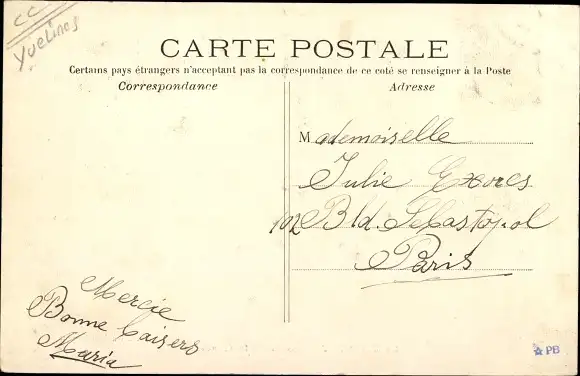 CC
Yvelines
CARTE POSTALE
Certains pays étrangers n'acceptent pas la correspondance de ce coté se renseigner à la Poste
Correspondance
Adresse
Mademoiselle
Julie
102 Bld. Sebastopol
Paris
Mercie
Bonne baisers
Maria
PB